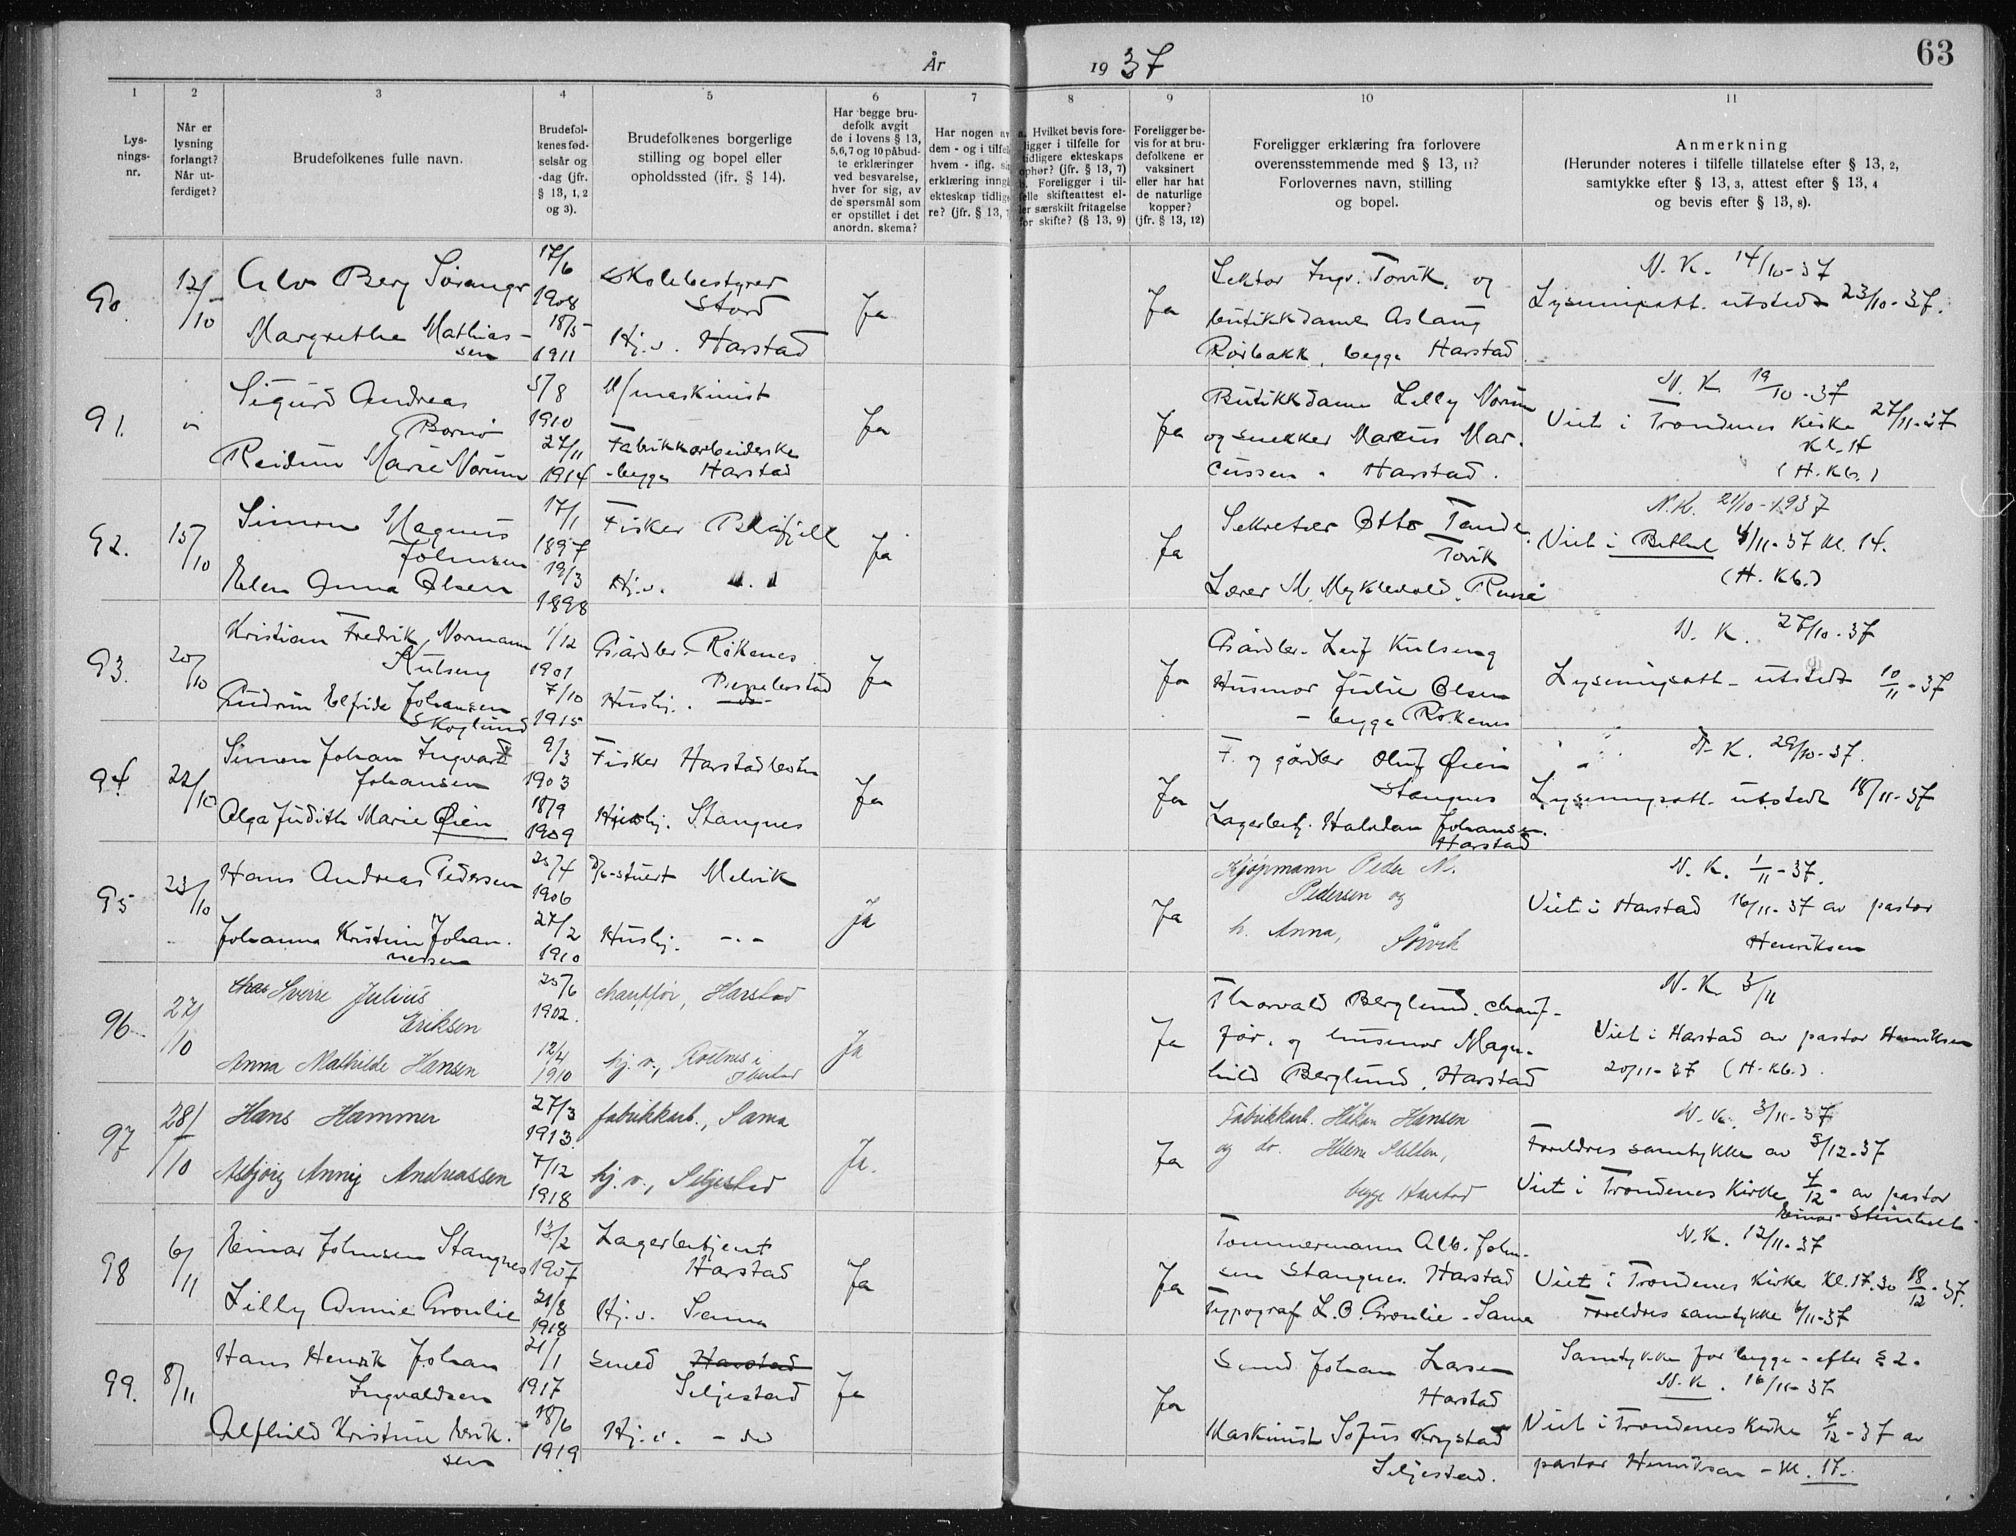 År 1937
63
1 2 3 4 5 6 7 8 9 10 11
Lysnings-nr.
Når er lysning forlangt? Når utferdiget?
Brudefolkenes fulle navn.
Brudefolkenes fødselsår og -dag (jfr. § 13, 1, 2 og 3).
Brudefolkenes borgerlige stilling og bopel eller opholdssted (ifr. § 14).
Har begge brudefolk avgit de i lovens § 13, 5, 6, 7 og 10 påbudte erklæringer ved besvarelse, hver for sig, av de spørsmål som er opstillet i det anordn. skema?
Har nogen av dem - og i tilfelle hvem - iflg. erklæring inngått ekteskap tidligere? (jfr. § 13,
a. Hvilket bevis foreligger i tilfelle for tidligere ekteskaps ophør? (jfr. § 13, 7) b. Foreligger i tilfelle skifteattest eller særskilt fritagelse for skifte? (§ 13, 9)
Foreligger bevis for at brudefolkene er vaksinert eller har hat de naturlige kopper? (jfr. § 13, 12)
Foreligger erklæring fra forlovere overensstemmende med § 13, 11? Forlovernes navn, stilling og bopel.
Anmerkning (Herunder noteres i tilfelle tillatelse efter § 13, 2, samtykke efter § 13, 3, attest efter § 13, 4 og bevis efter § 13, 8).
90 12/10 Alv Berg 17/6 1908 Skolebestyrer Stord Ja
Margrethe Mathiassen 18/5 1911 Hj.v. Harstad
Ja Lektor Ingv. Torvik og butikkdame Aslaug Rørbakk, begge Harstad
N. K. 14/10-37
Lysningsatt. utstedt 23/10-37.
91. " Sigurd Andreas 5/8 1910 M/maskinist Ja
Reidun Marie Norum 27/11 1914 Fabrikkarbeiderske - begge Harstad
Ja Butikkdame Lilly Norum og snekker Marius Marcussen - Harstad.
N. K. 19/10-37
Viet i Trondenes kirke 27/11-37
Kl. 17
(H. Kb.)
92. 15/10 Simon Magnus Johnsen 17/1 1897 Fisker Blåfjell Ja
Elen Anna Olsen 19/3 1898 Hj.v. " "
Ja Sekretær Otto Tande Torvik
Lærer M. Myklevold,
N.K. 21/10-1937
Viet i Betel 4/11-37 kl. 14.
(H. Kb.)
93. 20/10 Kristian Fredrik Normann Kulseng 1/12 1901 Gårdbr. Røkenes Ja
Gudrun Elfrida Johansen Skoglund 7/10 1915 Hushj. - do -
Ja Gårdbr. Leif Kulseng
Husmor Julie Olsen
- begge Røkenes
N. K. 27/10-37
Lysningsatt. utstedt 10/11-37
94. 22/10 Simon Johan Ingvard Johansen 9/3 1903 Fisker Harstadbotn Ja
Olga Judith Marie Øien 18/9 1909 Hushj. Stangnes
Ja F. og gårdbr Oluf Øien Stangnes
Lagerbetj. Halvdan Johansen. Harstad
N. K. 29/10-37.
Lysningsatt. utstedt 18/11-37
95 23/10 Hans Andreas Pedersen 25/4 1906 D/s-stuert Melvik Ja
Johanna Kristine Johannessen 27/2 1910 Hushj. - " -
Ja Kjøpmann Peder N. Pedersen og
h. Anna, Sørvik
N. K. 1/11-37.
Viet i Harstad 16/11-37 av pastor
Henriksen
96 27/10 Sverre Julius Eriksen 25/6 1902. chauffør, Harstad Ja
Anna Mathilde Hansen 12/4 1910 hj. v., Rotnes i Ibestad
Ja Thorvald Berglund, chauffør, og husmor Magnhild Berglund, Harstad
N. K. 3/11
Viet i Harstad av pastor Henriksen
20/11-37 (H. Kb.).
97 28/10 Hans Hammer 27/3 1913 fabrikkarb., Sama Ja.
Asbjørg Annie Andreassen 7/12 1918 hj. v., Seljestad
Ja Fabrikkarb. Håkon Hansen
og do. Helene Melden,
begge Harstad
N. K. 3/11-37
Foreldres samtykke av 3/12-37
Viet i Trondenes Kirke 4/12- av pastor
Einar Steinholt
98 6/11 Einar Johnsen Stangnes 13/2 1907 Lagerbetjent Harstad Ja
Lilly Annie Grønlie 21/8 1918 Hj. v. Sama
Ja Tømmermann Alb. Johnsen Stangnes Harstad
Typograf L. O. Grønlie - Sama
N.K. 12/11-37
Viet i Trondenes Kirke kl. 17.30 18/12-37.
Foreldres samtykke 6/11-37
99. 8/11 Hans Henrik Johan Ingvaldsen 21/1 1917 Smed Harstad Seljestad Ja
Alfhild Kristine Eriksen 18/6 1919 Hj. v. - do
Ja Smed Johan Larsen Harstad
Maskinist Sofus Krystad
Seljestad.
Samtykke for begge - efter § 2.
N. K. 16/11-37
Viet i Trondenes Kirke 4/12-37 av
pastor Henriksen - Kl. 17.